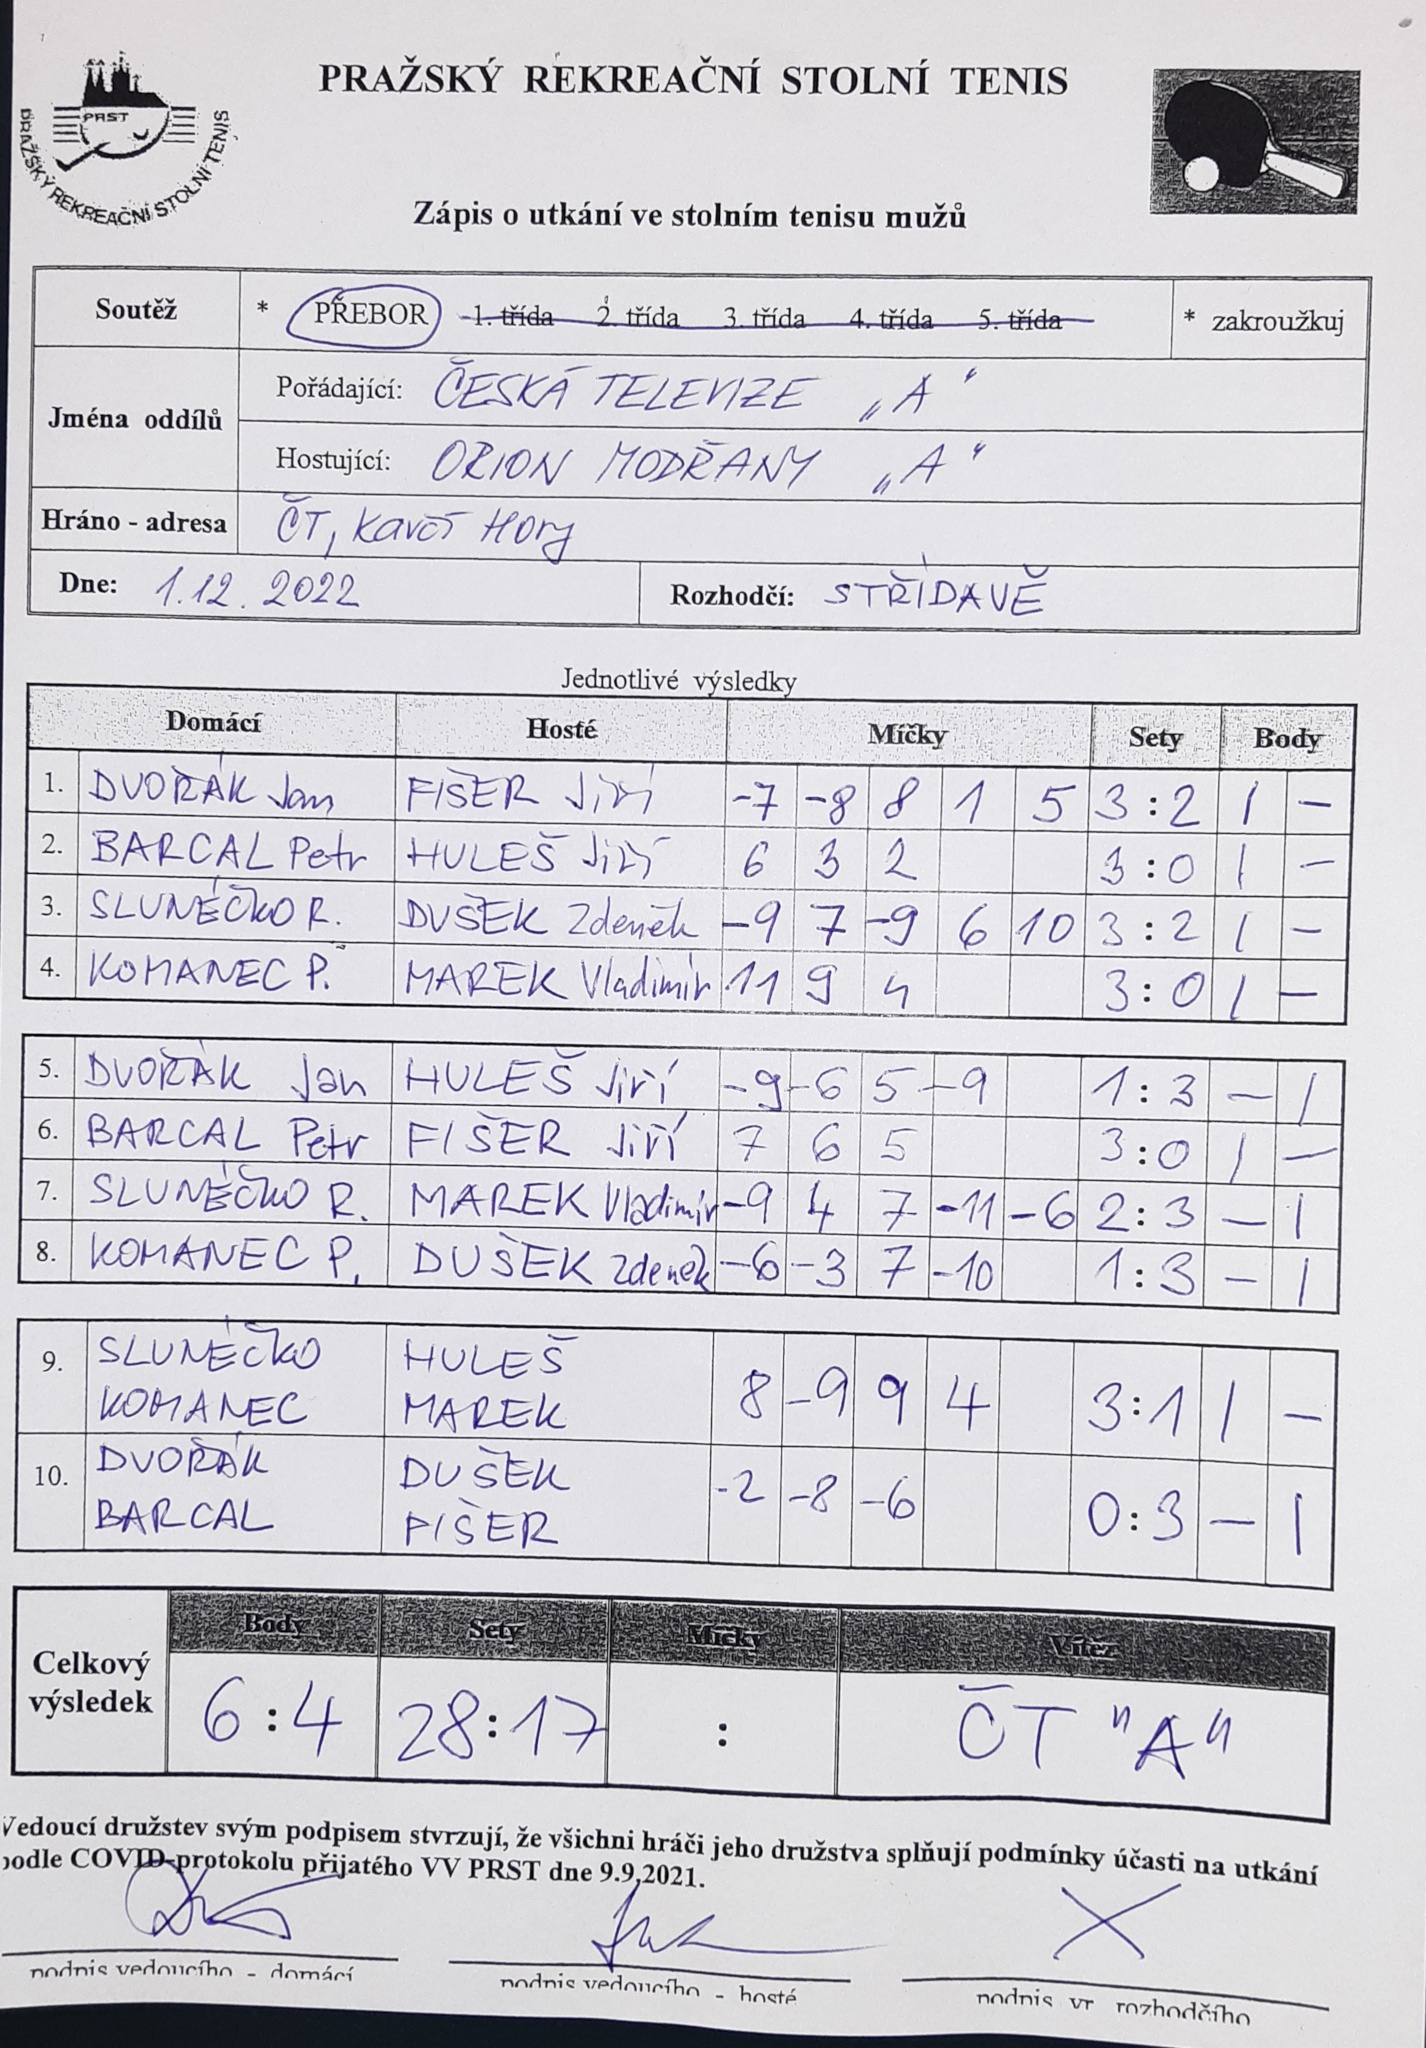 PRAŽSKÝ REKREAČNÍ STOLNÍ TENIS
PRST
PRAŽSKÝ REKREAČNÍ STOLNÍ TENIS
Zápis o utkání ve stolním tenisu mužů
Soutěž * PŘEBOR 1. třída 2. třída 3. třída 4. třída 5. třída * zakroužkuj
Jména oddílů
Pořádající: ČESKÁ TELEVIZE „A"
Hostující: ORION MODŘANY „A"
Hráno - adresa ČT, Kavčí Hory
Dne: 1.12.2022 Rozhodčí: STŘÍDAVĚ
Jednotlivé výsledky
Domácí Hosté Míčky Sety Body
1. DVOŘÁK Jan FIŠER Jiří -7 -8 8 1 5 3:2 1 -
2. BARCAL Petr HULEŠ Jiří 6 3 2 3:0 1 -
3. SLUNÉČKO R. DUŠEK Zdeněk -9 7 -9 6 10 3:2 1 -
4. KOMANEC P. MAREK Vladimír 11 9 4 3:0 1 -
5. DVOŘÁK Jan HULEŠ Jiří -9 -6 5 -9 1:3 - 1
6. BARCAL Petr FIŠER Jiří 7 6 5 3:0 1 -
7. SLUNÉČKO R. MAREK Vladimír -9 4 7 -11 -6 2:3 - 1
8. KOMANEC P. DUŠEK Zdeněk -6 -3 7 -10 1:3 - 1
9. SLUNÉČKO HULEŠ
KOMANEC MAREK 8 -9 9 4 3:1 1 -
10. DVOŘÁK DUŠEK
BARCAL FIŠER -2 -8 -6 0:3 - 1
Body Sety Míčky Vítěz
Celkový výsledek 6:4 28:17 : ČT "A"
Vedoucí družstev svým podpisem stvrzují, že všichni hráči jeho družstva splňují podmínky účasti na utkání
podle COVID-protokolu přijatého VV PRST dne 9.9.2021.
podpis vedoucího - domácí podpis vedoucího - hosté podpis vr. rozhodčího